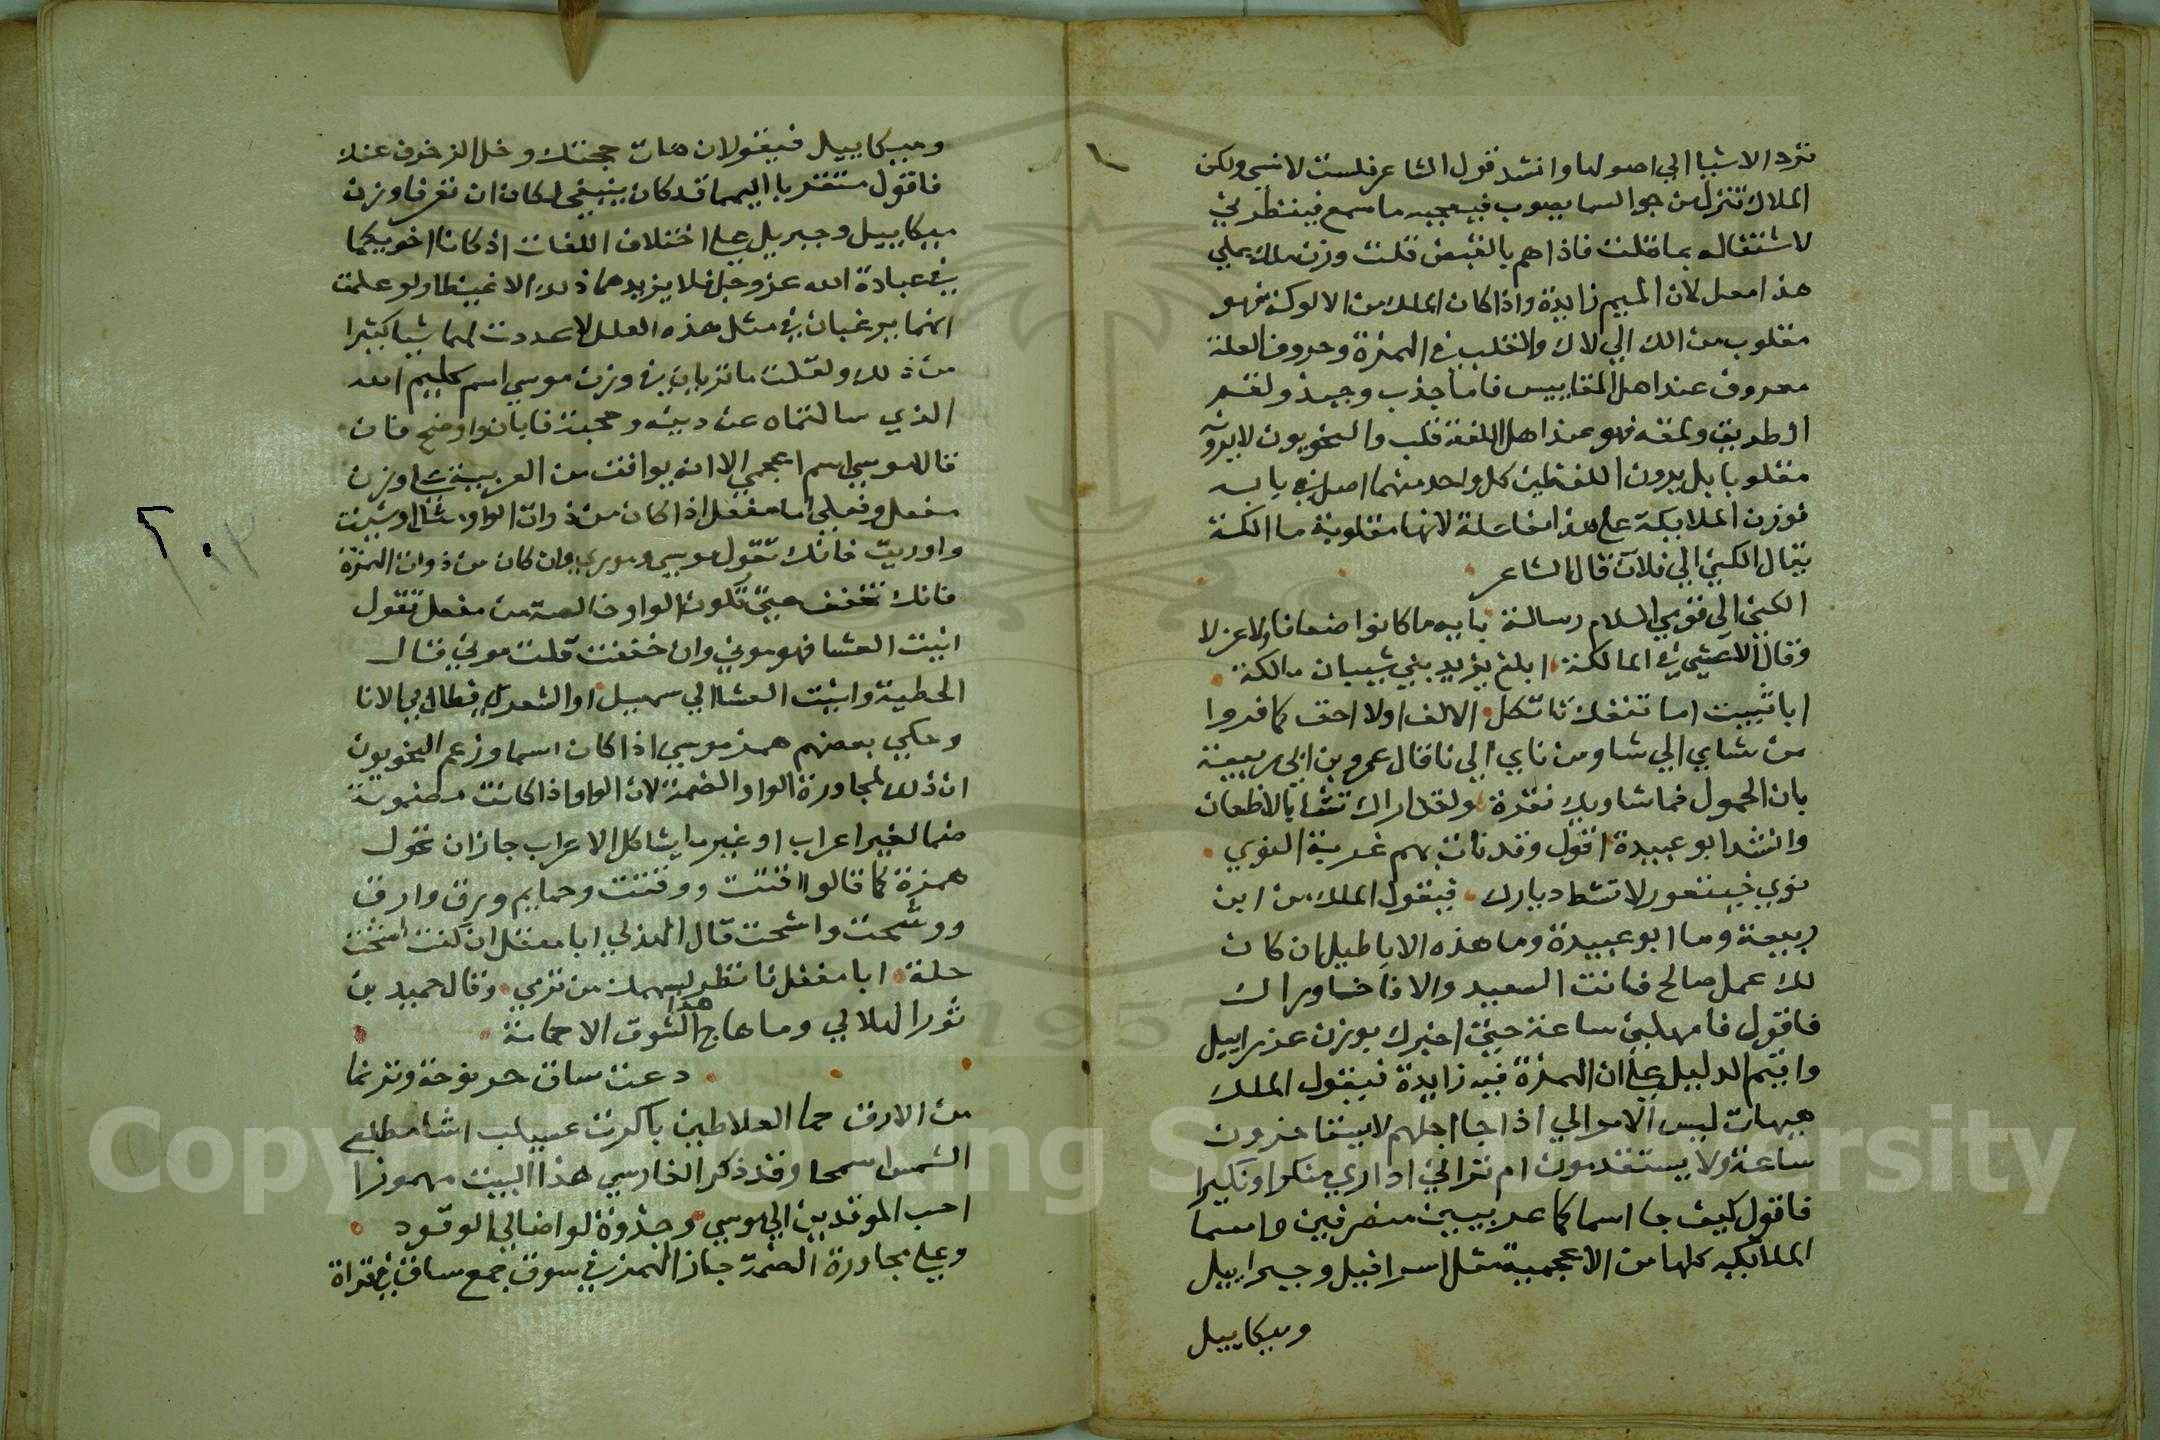 ترد الاشيا الي اصولها وانشد قول الشاعر فلست لانسي ولكن
الملاك تنزل من جو السما يصوب فيعجبه ما سمع فينظرني
لاشتغاله بما قلت فاذا هم بالقبض قلت وزن ملك علي
هذا معل لان الميم زايدة واذا كان الملك من الالوكة فهو
مقلوب من الك الي لاك والقلب في الهمزة وحروف العلة
معروف عند اهل المقاييس فاما جذب وجبذ ولقم
الطريق ولمقه فهو عند اهل اللغة قلب والنحويون لا يرونه
مقلوبا بل يرون اللفظين كل واحد منهما اصل في بابه
فوزن الملايكة علي هذا معافلة لانها مقلوبة مالكة
يقال الكني الي فلان قال الشاعر
الكني الي قومي السلام رسالة باية ما كانوا ضعافا ولا عزلا
وقال الاعشي في المالكة ابلغ يزيد بني شيبان مالكة
ابا ثبيت اما تنفك تاتكل الالف اولا احق كما فروا
من شاي الي شا ومن ناي الي نا قال عمرو بن ابي ربيعة
بان الحمول فما شاونك نقرة ولقد اراك تشا بالاظعان
وانشد ابو عبيدة اقول وقد نات بهم غربة النوي
نوي خيتعور لا تشط ديارك فيقول الملك من ابن
ربيعة وما ابو عبيدة وما هذه الاباطيل ان كان
لك عمل صالح فانت السعيد والا فاخسا وراك
فاقول فامهلني ساعة حتي اخبرك بوزن عزراييل
واقيم الدليل علي ان الهمزة فيه زايدة فيقول الملك
هيهات ليس الامر الي اذا جا اجلهم لا يستاخرون
ساعة ولا يستقدمون ام تراني اداري منكرا ونكيرا
فاقول كيف جا اسماكما عربيين منصرفين واسما
الملايكة كلها من الاعجمية مثل اسرافيل وجبراييل
وميكاييل
وميكاييل فيقولان هات حجتك وخل الزخرف عنك
فاقول متقربا اليهما قد كان ينبغي لكما ان تعرفا وزن
ميكاييل وجبريل علي اختلاف اللغات اذ كانا اخويكما
في عبادة الله عز وجل فلا يزيدهما ذلك الا غيظا ولو علمت
انهما يرغبان في مثل هذه العلل لاعددت لهما شيا كثيرا
من ذلك ولقلت ما تريان في وزن موسي اسم كليم الله
الذي سالتماه عن دينه وحجته فابان واوضح فان
قالا موسي اسم اعجمي الا انه يوافق من العربية علي وزن
مفعل وفعلي اما مفعل اذا كان من ذوات الواو مثل اوسيت
واوريت فانك تقول موسي وموري وان كان من ذوات الهمزة
فانك تخفف حتي تكون الواو خالصة من مفعل تقول
انيت العشا فهو موني وان خففت قلت موني قال
الحطية وانيت العشا الي سهيل او الشعري فطال بي الانا
وحكي بعضهم همز موسي اذا كان اسما وزعم النحويون
ان ذلك لمجاورة الواو الضمة لان الواو اذا كانت مضمومة
ضما لغير اعراب او غير ما يشاكل الاعراب جاز ان تحول
همزة كما قالوا اقتت ووقتت وحمايم ورق وارق
ووشحت واشحت قال الهذلي ابا معقل ان كنت اشحت
حلة ابا معقل فانظر لسهمك من ترمي وقال حميد بن
ثور الهلالي وما هاج هذا الشوق الا حمامة
دعت ساق حر نوحة وترنما
من الارق حما العلاطين باكرت عسيب اشا مطلع
الشمس اسحما وقد ذكر الفارسي هذا البيت مهموزا
احب الموقدين الي موسي وجذوة لو اضا لي الوقود
وعلي مجاورة الضمة جاز الهمز في سوق جمع ساق في قراة